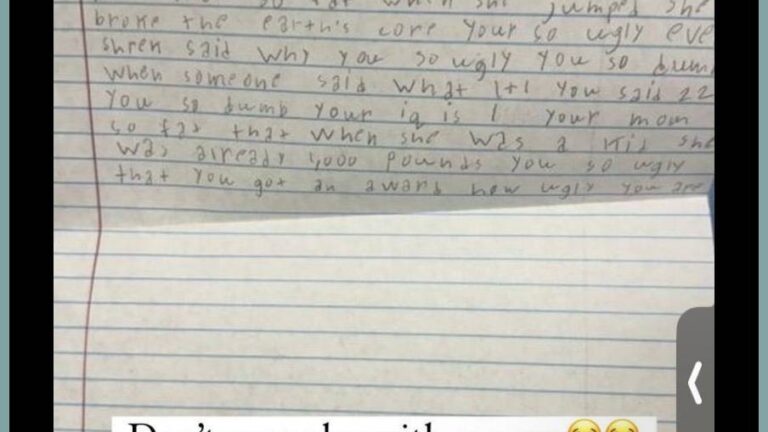 so fat when she jumped she
broke the earth's core your so ugly eve
shren said why you so ugly you so dum
when someone said what 1+1 you said 22
you so dumb your iq is 1 your mom
so fat that when she was a kid she
was already 1,000 pounds you so ugly
that you got an award how ugly you are